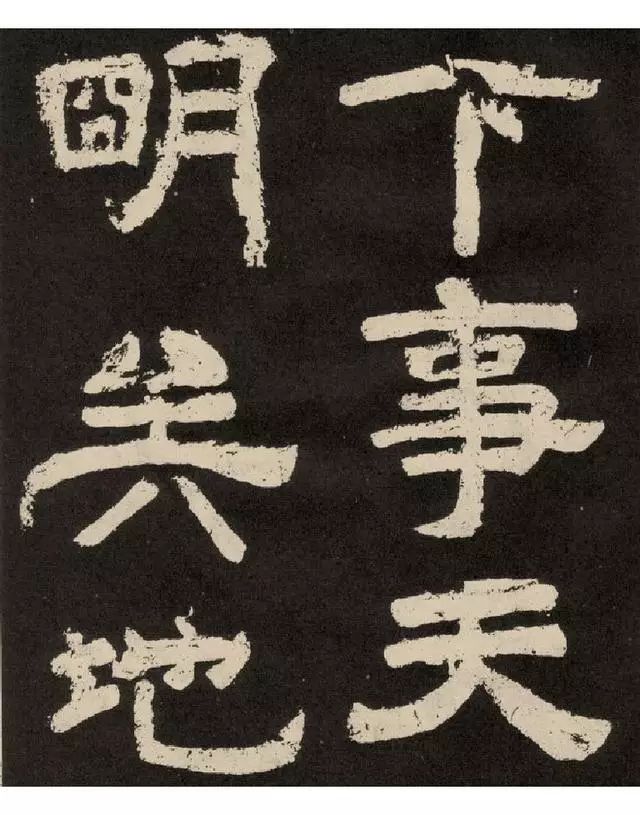 下事天
明矣地